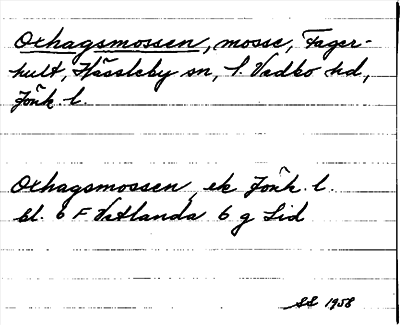 Oxhagsmossen, mosse, Fager-
hult, Hässleby sn, S. Vedbo hd,
Jönk. l.
Oxhagsmossen, ek Jönk. l.
bl. 6 F Vetlanda 6 g Lid
SS 1958